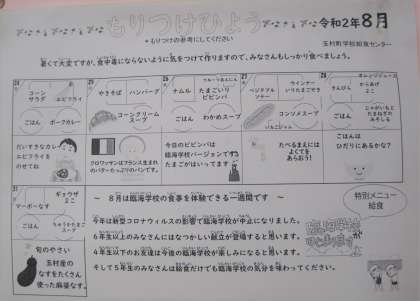 もりつけひょう
令和2年8月
＊もりつけの参考にしてください
玉村町学校給食センター
暑くて大変ですが、食中毒にならないように気をつけて作りますので、みなさんもしっかり食べましょう。
24
コーン
サラダ
エビフライ
ごはん
ポークカレー
だいすきなカレー
エビフライを
のせてね
25
やきそば
ハンバーグ
コーンクリーム
スープ
クロワッサンはフランス生まれ
のバターたっぷりのパンです。
26
ナムル
たまごいり
ビビンバ
ごはん
わかめスープ
今日のビビンバは
臨海学校バージョンです
たまごがはいってます
27
ベジタブル
ソテー
ウィンナー
いりたまごやき
コンソメスープ
いちごジャム
たべるまえには
よくてを
あらおう！
28
オレンジジュース
きんぴら
からあげ
2こ
ごはん
じゃがいもと
たまねぎの
みそしる
ごはんは
ひだりにあるかな？
31
マーボーなす
ギョウザ
2こ
ごはん
旬のやさい
玉村産の
なすをたくさん
使った麻婆なす。
～ 8月は臨海学校の食事を体験できる一週間です ～
特別メニュー
給食
今年は新型コロナウィルスの影響で臨海学校が中止になりました。
6年生以上のみなさんにはなつかしい献立が登場すると思います。
4年生以下のお友達は今後の臨海学校が楽しみになると思います。
そして5年生のみなさんは給食だけでも臨海学校の気分を味わってください。